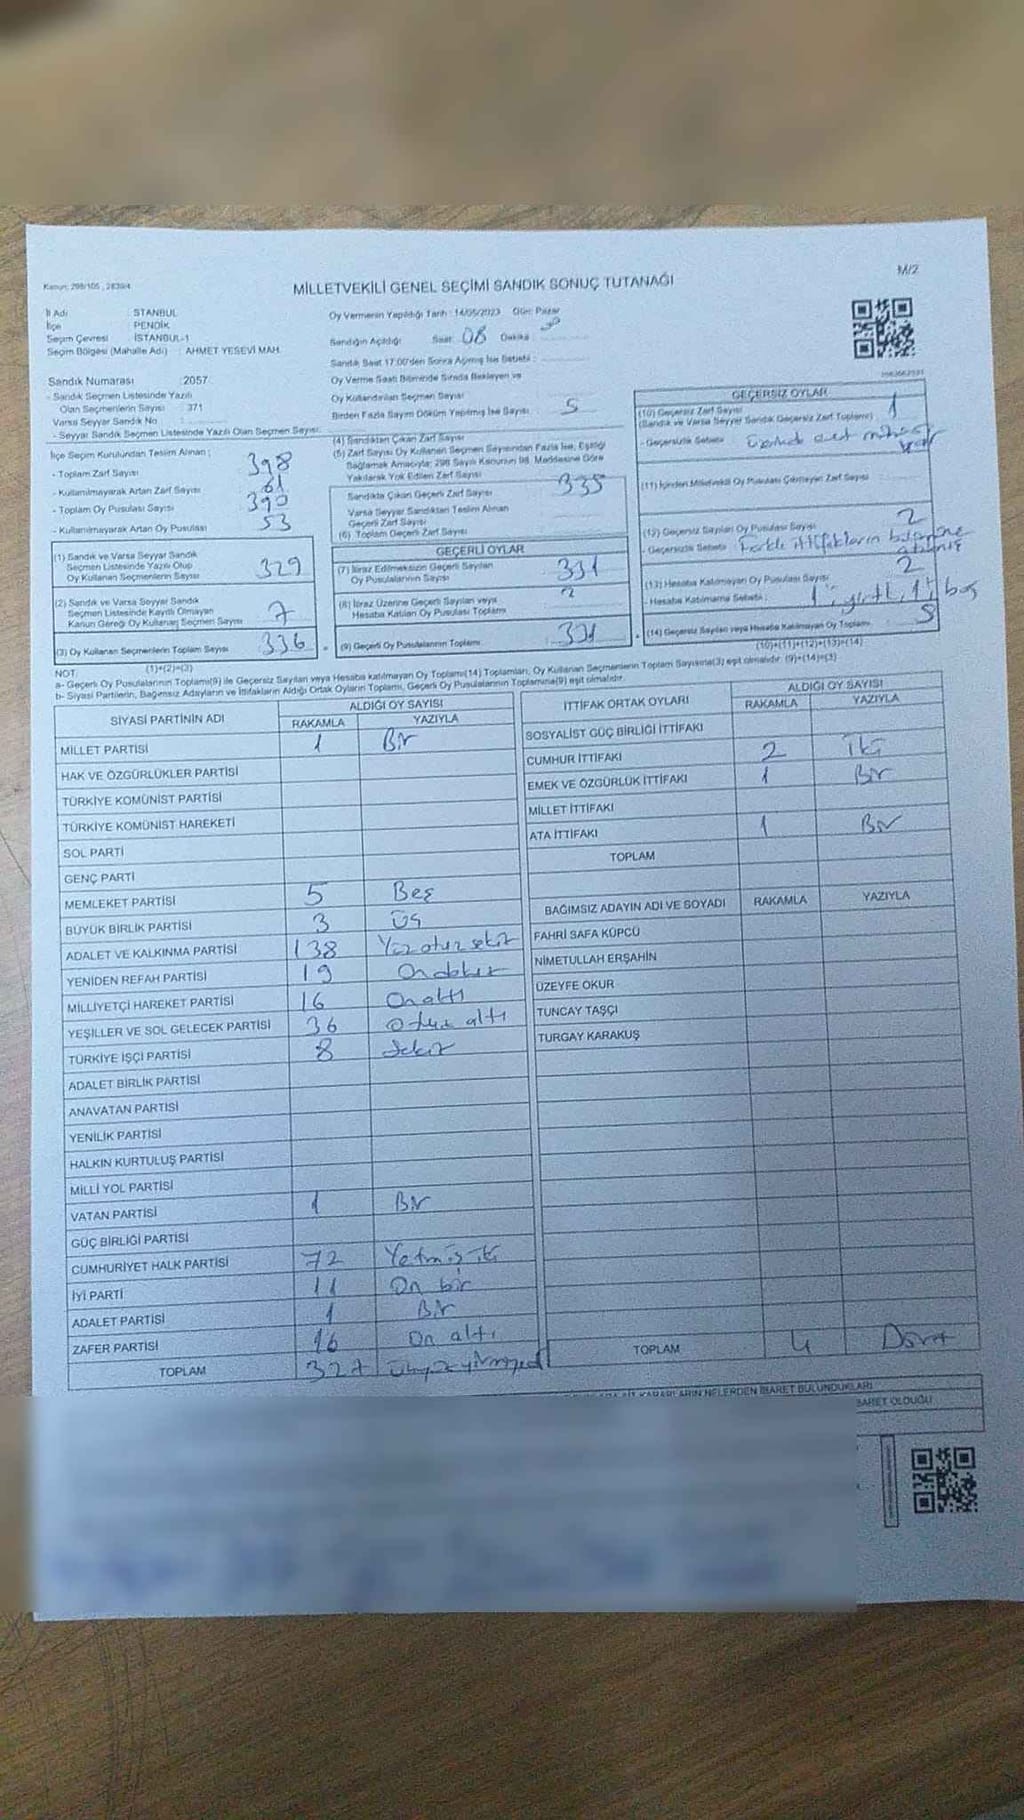 Kanun: 298/105 , 2839/4
M/2
MİLLETVEKİLİ GENEL SEÇİMİ SANDIK SONUÇ TUTANAĞI
İl Adı : İSTANBUL
İlçe : PENDİK
Seçim Çevresi : İSTANBUL-1
Seçim Bölgesi (Mahalle Adı) : AHMET YESEVİ MAH.
Sandık Numarası : 2057
- Sandık Seçmen Listesinde Yazılı
Olan Seçmenlerin Sayısı : 371
Varsa Seyyar Sandık No :
- Seyyar Sandık Seçmen Listesinde Yazılı Olan Seçmen Sayısı:
İlçe Seçim Kurulundan Teslim Alınan ;
- Toplam Zarf Sayısı 398
- Kullanılmayarak Artan Zarf Sayısı 61
- Toplam Oy Pusulası Sayısı 390
- Kullanılmayarak Artan Oy Pusulası 53
(1) Sandık ve Varsa Seyyar Sandık
Seçmen Listesinde Yazılı Olup
Oy Kullanan Seçmenlerin Sayısı 329
(2) Sandık ve Varsa Seyyar Sandık
Seçmen Listesinde Kayıtlı Olmayan
Kanun Gereği Oy Kullanan Seçmen Sayısı 7
(3) Oy Kullanan Seçmenlerin Toplam Sayısı 336
(1)+(2)=(3)
Oy Vermenin Yapıldığı Tarih : 14/05/2023 Gün: Pazar
Sandığın Açıldığı Saat: 08 Dakika :
Sandık Saat 17:00'den Sonra Açılmış İse Sebebi :
Oy Verme Saati Bitiminde Sırada Bekleyen ve
Oy Kullandırılan Seçmen Sayısı
Birden Fazla Sayım Döküm Yapılmış İse Sayısı : 5
(4) Sandıktan Çıkan Zarf Sayısı
(5) Zarf Sayısı Oy Kullanan Seçmen Sayısından Fazla İse, Eşitliği
Sağlamak Amacıyla; 298 Sayılı Kanunun 98. Maddesine Göre
Yakılarak Yok Edilen Zarf Sayısı
Sandıkta Çıkan Geçerli Zarf Sayısı 335
Varsa Seyyar Sandıktan Teslim Alınan
Geçerli Zarf Sayısı
(6) Toplam Geçerli Zarf Sayısı
GEÇERLİ OYLAR
(7) İtiraz Edilmeksizin Geçerli Sayılan
Oy Pusulalarının Sayısı 331
(8) İtiraz Üzerine Geçerli Sayılan veya
Hesaba Katılan Oy Pusulası Toplamı
(9) Geçerli Oy Pusulalarının Toplamı 331
GEÇERSİZ OYLAR
(10) Geçersiz Zarf Sayısı
(Sandık ve Varsa Seyyar Sandık Geçersiz Zarf Toplamı) 1
- Geçersizlik Sebebi : var
(11) İçinden Milletvekili Oy Pusulası Çıkmayan Zarf Sayısı
(12) Geçersiz Sayılan Oy Pusulası Sayısı 2
- Geçersizlik Sebebi : Farklı ittifakların
(13) Hesaba Katılmayan Oy Pusulası Sayısı 2
- Hesaba Katılmama Sebebi : 1 yırtık, 1 boş
(14) Geçersiz Sayılan veya Hesaba Katılmayan Oy Toplamı 5
(10)+(11)+(12)+(13)=(14)
NOT:
a- Geçerli Oy Pusulalarının Toplamı(9) ile Geçersiz Sayılan veya Hesaba katılmayan Oy Toplamı(14) Toplamları, Oy Kullanan Seçmenlerin Toplam Sayısına(3) eşit olmalıdır. (9)+(14)=(3)
b- Siyasi Partilerin, Bağımsız Adayların ve İttifakların Aldığı Ortak Oyların Toplamı, Geçerli Oy Pusulalarının Toplamına(9) eşit olmalıdır.
SİYASİ PARTİNİN ADI ALDIĞI OY SAYISI
RAKAMLA YAZIYLA
MİLLET PARTİSİ 1 Bir
HAK VE ÖZGÜRLÜKLER PARTİSİ
TÜRKİYE KOMÜNİST PARTİSİ
TÜRKİYE KOMÜNİST HAREKETİ
SOL PARTİ
GENÇ PARTİ
MEMLEKET PARTİSİ 5 Beş
BÜYÜK BİRLİK PARTİSİ 3 Üç
ADALET VE KALKINMA PARTİSİ 138 Yüz otuz sekiz
YENİDEN REFAH PARTİSİ 19 On dokuz
MİLLİYETÇİ HAREKET PARTİSİ 16 On altı
YEŞİLLER VE SOL GELECEK PARTİSİ 36 Otuz altı
TÜRKİYE İŞÇİ PARTİSİ 8 Sekiz
ADALET BİRLİK PARTİSİ
ANAVATAN PARTİSİ
YENİLİK PARTİSİ
HALKIN KURTULUŞ PARTİSİ
MİLLİ YOL PARTİSİ
VATAN PARTİSİ 1 Bir
GÜÇ BİRLİĞİ PARTİSİ
CUMHURİYET HALK PARTİSİ 72 Yetmiş iki
İYİ PARTİ 11 On bir
ADALET PARTİSİ 1 Bir
ZAFER PARTİSİ 16 On altı
TOPLAM 327 Üçyüzyirmiyedi
İTTİFAK ORTAK OYLARI ALDIĞI OY SAYISI
RAKAMLA YAZIYLA
SOSYALİST GÜÇ BİRLİĞİ İTTİFAKI
CUMHUR İTTİFAKI 2 İki
EMEK VE ÖZGÜRLÜK İTTİFAKI 1 Bir
MİLLET İTTİFAKI
ATA İTTİFAKI 1 Bir
TOPLAM
BAĞIMSIZ ADAYIN ADI VE SOYADI RAKAMLA YAZIYLA
FAHRİ SAFA KÜPCÜ
NİMETULLAH ERŞAHİN
ÜZEYFE OKUR
TUNCAY TAŞÇI
TURGAY KARAKUŞ
TOPLAM 4 Dört
KARARLARIN NELERDEN İBARET BULUNDUKLARI
İBARET OLDUĞU